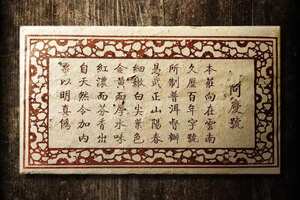 阿慶號
本莊向在雲南
久歷百年字號
所制普洱督辦
易武正山陽春
細嫩白尖葉色
金黃而厚水味
紅濃而芬香出
自天然今加內
票以明真偽